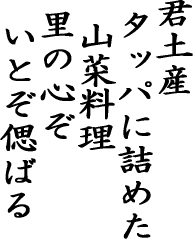 君土産
タッパに詰めた
山菜料理
里の心ぞ
いとぞ偲ばる